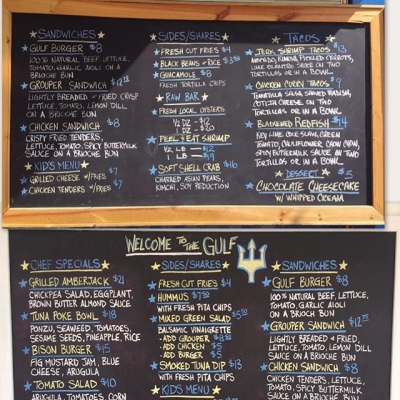 SANDWICHES
GULF BURGER $8
100% NATURAL BEEF, LETTUCE,
TOMATO, GARLIC AIOLI ON A
BRIOCHE BUN
GROUPER SANDWICH $12.75
LIGHTLY BREADED & FRIED CRISP
LETTUCE, TOMATO, LEMON DILL
ON A BRIOCHE BUN
CHICKEN SANDWICH $8
CRISPY FRIED TENDERS,
LETTUCE, TOMATO, SPICY BUTTERMILK
SAUCE ON A BRIOCHE BUN
KID'S MENU
GRILLED CHEESE W/FRIES $7
CHICKEN TENDERS W/FRIES $7
SIDES/SHARES
FRESH CUT FRIES $4
BLACK BEANS & RICE
GUACAMOLE $8
FRESH TORTILLA CHIPS
RAW BAR
FRESH LOCAL OYSTERS
1/2 DZ
DZ
PEEL & EAT SHRIMP
1/2 LB $12
1 LB $19
SOFT SHELL CRAB $16
CHARRED ASIAN PEARS,
KIMCHI, SOY REDUCTION
TACOS
JERK SHRIMP TACOS $13
AVOCADO, KIMCHI, PICKLED CARROTS,
LIME CILANTRO SAUCE ON TWO
TORTILLAS OR IN A BOWL
CHICKEN CURRY TACOS $9
TOMATILLO SALSA
COTIJA CHEESE ON TWO
TORTILLAS OR IN A BOWL
BLACKENED REDFISH $14
KEY LIME COLE SLAW, GREEN
TOMATO, CAULIFLOWER CHOW CHOW,
SPICY BUTTERMILK SAUCE ON TWO
TORTILLAS OR IN A BOWL
DESSERT
CHOCOLATE CHEESECAKE $5
W/ WHIPPED CREAM
WELCOME TO THE GULF
CHEF SPECIALS
GRILLED AMBERJACK $21
CHICKPEA SALAD, EGGPLANT,
BROWN BUTTER ALMOND SAUCE
TUNA POKE BOWL $18
PONZU, SEAWEED, TOMATOES,
SESAME SEEDS, PINEAPPLE, RICE
BISON BURGER $15
FIG MUSTARD JAM, BLUE
CHEESE, ARUGULA
TOMATO SALAD $10
ARUGULA, TOMATOES, CORN
SIDES/SHARES
FRESH CUT FRIES $4
HUMMUS $7.50
WITH FRESH PITA CHIPS
MIXED GREEN SALAD $5.50
BALSAMIC VINAIGRETTE
- ADD GROUPER
- ADD CHICKEN $5
- ADD BURGER $5
SMOKED TUNA DIP $13
WITH FRESH PITA CHIPS
KID'S MENU
SANDWICHES
GULF BURGER $8
100% NATURAL BEEF, LETTUCE,
TOMATO, GARLIC AIOLI
ON A BRIOCHE BUN
GROUPER SANDWICH $12.75
LIGHTLY BREADED & FRIED,
LETTUCE, TOMATO, LEMON DILL
SAUCE ON A BRIOCHE BUN
CHICKEN SANDWICH $8
CHICKEN TENDERS, LETTUCE,
TOMATO, SPICY BUTTERMILK
SAUCE ON A BRIOCHE BUN